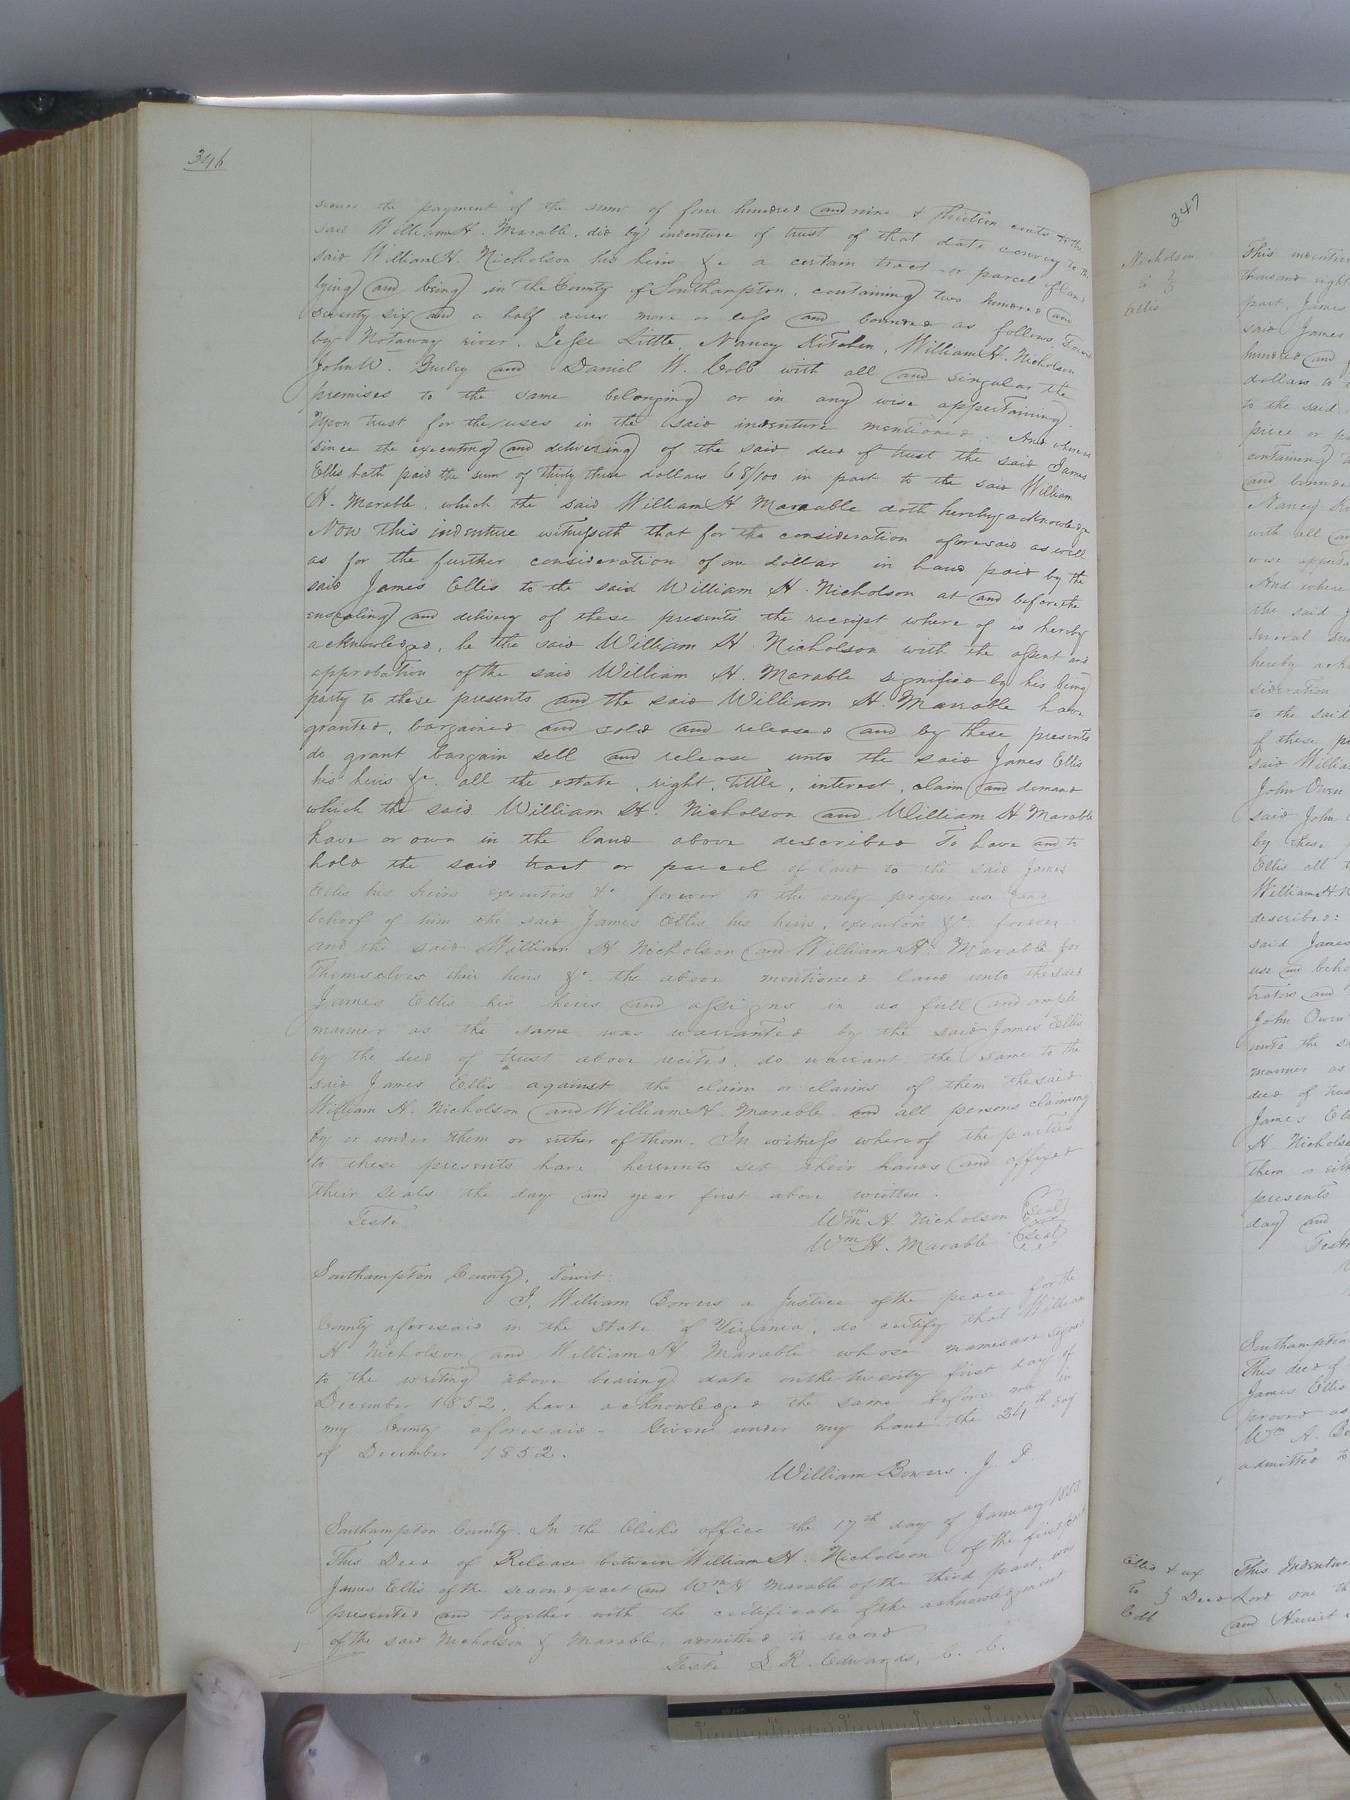 346
secure the payment of the sum of four hundred and nine & thirteen cents to the
said William H. Marable. did by indenture of trust of that date convey to the
said William H. Nicholson his heirs &c a certain tract or parcel of land
lying and being in the County of Southampton, containing two hundred and
seventy six and a half acres more or less and bounded as follows, Towit
by Notaway river. Jesse Little, Nancy Kitchen, William H. Nicholson
John W. Gurley and Daniel W. Cobb with all and singular the
premises to the same belonging or in any wise appertaining.
Upon trust for the uses in the said indenture mentioned. And whereas
since the executing and delivering of the said deed of trust the said James
Ellis hath paid the sum of thirty three dollars 68/100 in part to the said William
H. Marable, which the said William H Marable doth hereby acknowledge
Now this indenture witnesseth that for the consideration aforesaid as well
as for the further consideration of one dollar in hand paid by the
said James Ellis to the said William H. Nicholson at and before the
ensealing and delivery of these presents the receipt where of is hereby
acknowledged, he the said William H Nicholson with the assent and
approbation of the said William H. Marable signified by his being
party to these presents and the said William H. Marable have
granted, bargained and sold and released and by these presents
do grant bargain sell and release unto the said James Ellis
his heirs &c. all the estate, right, tittle, interest, claim and demand
which the said William H. Nicholson and William H Marable
have or own in the land above described To have and to
hold the said tract or parcel of land to the said James
Ellis his heirs executors &c forever to the only proper use and
behoof of him the said James Ellis his heirs, executors &c. forever
and the said William H Nicholson and William H. Marable for
themselves their heirs &c. the above mentioned land unto the said
James Ellis his heirs and assigns in as full and ample
manner as the same was warranted by the said James Ellis
by the deed of trust above recited, do warrant the same to the
said James Ellis against the claim or claims of them the said
William H. Nicholson and William H. Marable and all persons claiming
by or under them or either of them. In witness whereof the parties
to these presents have hereunto set their hands and affixed
their seals the day and year first above written.
Teste Wm H. Nicholson (Seal)
Wm H. Marable (Seal)
Southampton County, Towit:
I, William Bowers a Justice of the peace for the
County aforesaid in the State of Virginia, do certify that William
H Nicholson and William H Marable whose names are signed
to the writing above bearing date on the twenty first day of
December 1852, have acknowledged the same before me in
my County aforesaid - Given under my hand the 24th day
of December 1852.
William Bowers. J. P
Southampton County. In the Clerk's office the 17th day of January 1853
This Deed of Release between William H. Nicholson of the first part
James Ellis of the second part and Wm H Marable of the third part, was
presented and together with the certificate of the acknowledgment
of the said Nicholson & Marable, admitted to record
Teste L R. Edwards, C. C.
347
Nicholson
to
Ellis
This indenture
thousand eight
part, James
said James
hundred and
dollars
to the said
piece or
containing
and bounded
Nancy
with all and
wise
And where
the said
several
hereby
sideration
to the said
of these
said William
John Owen
said John
by these
Ellis all
William H N
described:
said James
use and beho
trators and
John Owen
unto the
manner as
deed of trust
James
H Nichols
them or eith
presents
day and
Test
Southampton
This deed of
James Ellis
proved as
Wm
admitted to
Ellis & ux
To } Deed
Cobb
This Indenture
Lord one th
and Harriet